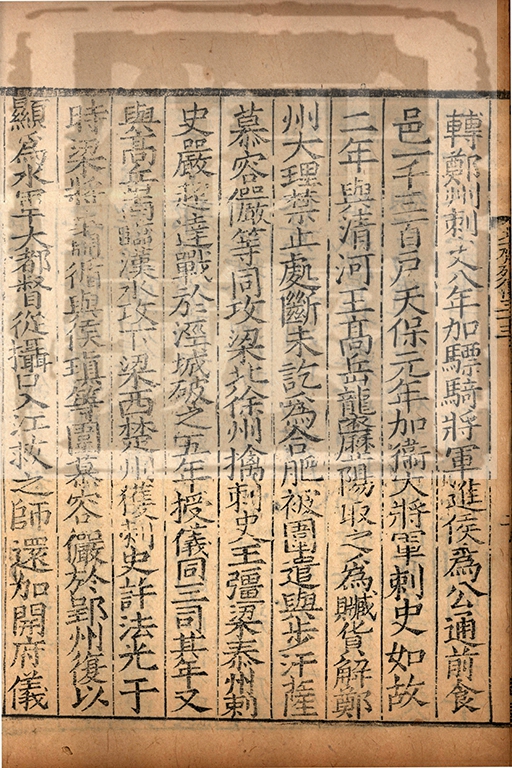 轉鄭州刺史八年加驃騎將軍進侯爲公通前食
邑一千三百戶天保元年加衞大將軍刺史如故
二年與清河王高岳襲歷陽取之又爲贓貨解鄭
州大理禁止處斷未訖爲合肥被圍遣與步汗薩
慕容儼等同攻梁北徐州擒刺史王彊梁秦州刺
史嚴超達戰於涇城破之五年授儀同三司其年又
與高岳南臨漢水攻下梁西楚州獲刺史許法光于
時梁將蕭循與侯瑱等圍慕容儼於郢州復以
顯爲水軍大都督從攝口入江救之師還加開府儀